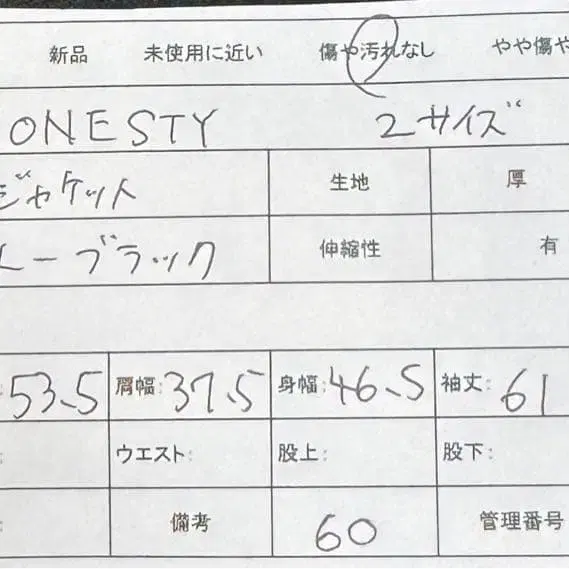 新品 未使用に近い 傷や汚れなし やや傷や
ONESTY 2サイズ
ジャケット 生地 厚
ーブラック 伸縮性 有
53.5 肩幅: 37.5 身幅: 46.5 袖丈: 61
ウエスト: 股上: 股下:
備考 60 管理番号